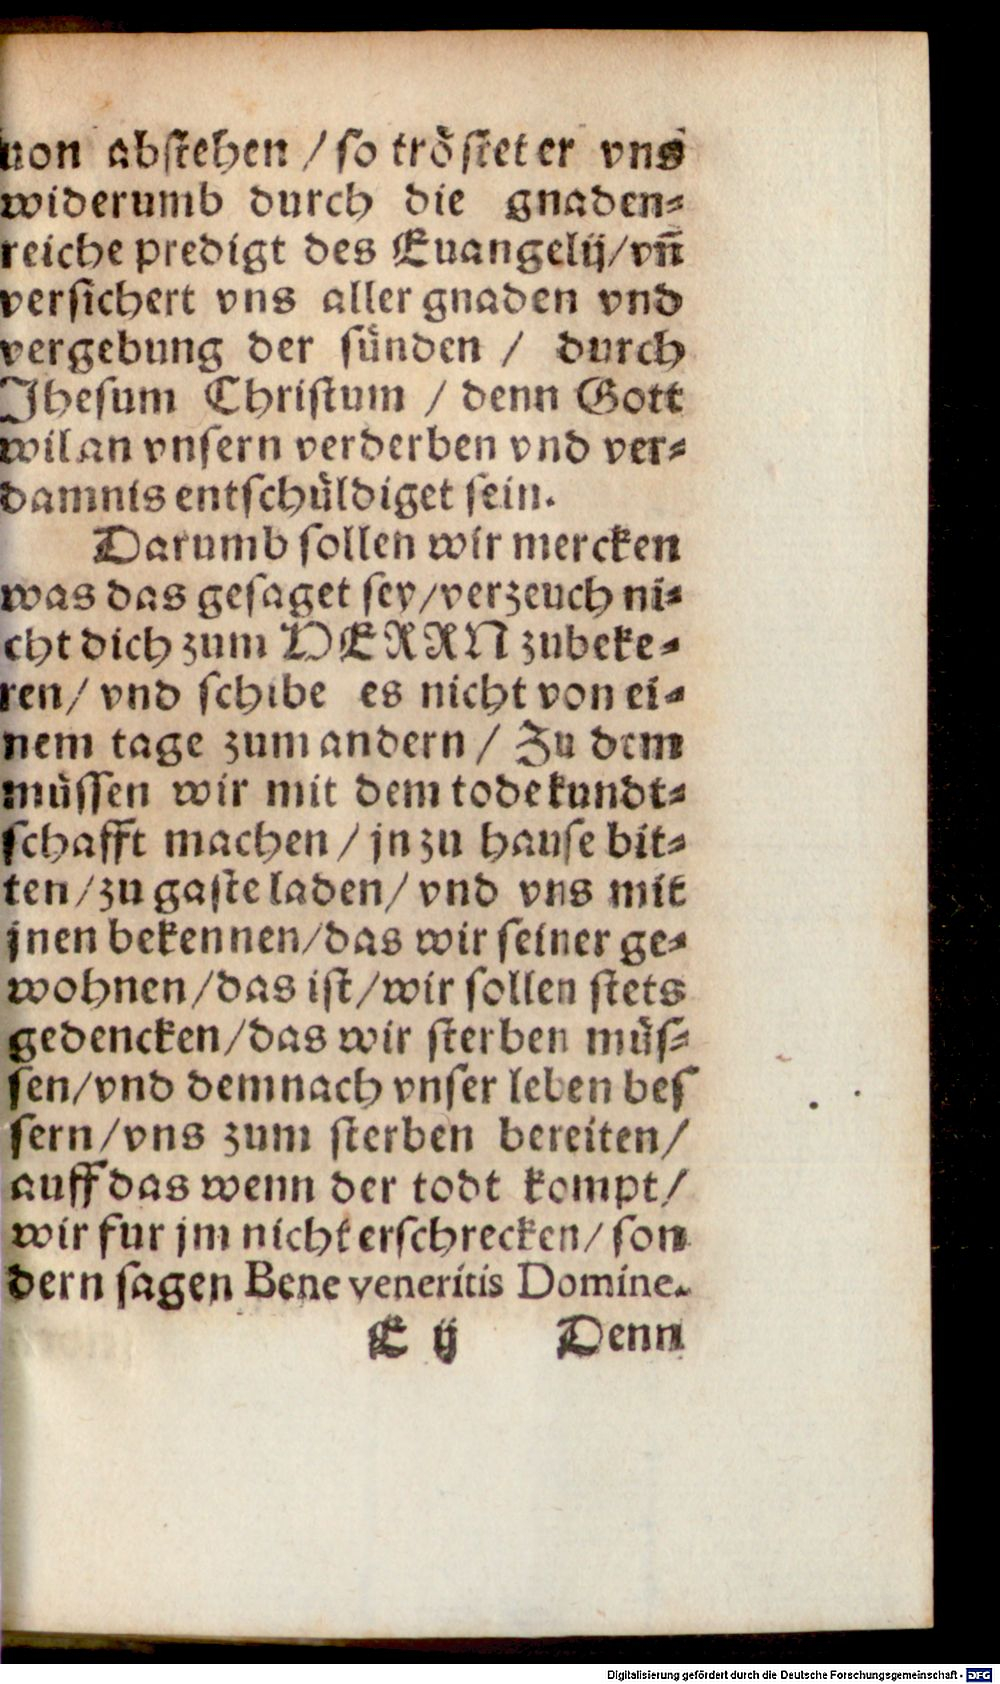 uon abstehen / so tröstet er vns
widerumb durch die gnaden=
reiche predigt des Euangelij/vn̄
versichert vns aller gnaden vnd
vergebung der sünden / durch
Jhesum Christum / denn Gott
wil an vnsern verderben vnd ver=
damnis entschüldiget sein.
Darumb sollen wir mercken
was das gesaget sey/verzeuch ni=
cht dich zum HERRN zubeke=
ren/ vnd schibe es nicht von ei=
nem tage zum andern / Zu dem
müssen wir mit dem tode kundt=
schafft machen / jn zu hause bit=
ten/zu gaste laden/ vnd vns mit
jnen bekennen/das wir seiner ge=
wohnen/das ist/wir sollen stets
gedencken/das wir sterben müs=
sen/vnd demnach vnser leben bes
sern/vns zum sterben bereiten/
auff das wenn der todt kompt/
wir fur jm nicht erschrecken/ son
dern sagen Bene veneritis Domine.
E ij Denn
Digitalisierung gefördert durch die Deutsche Forschungsgemeinschaft - DFG